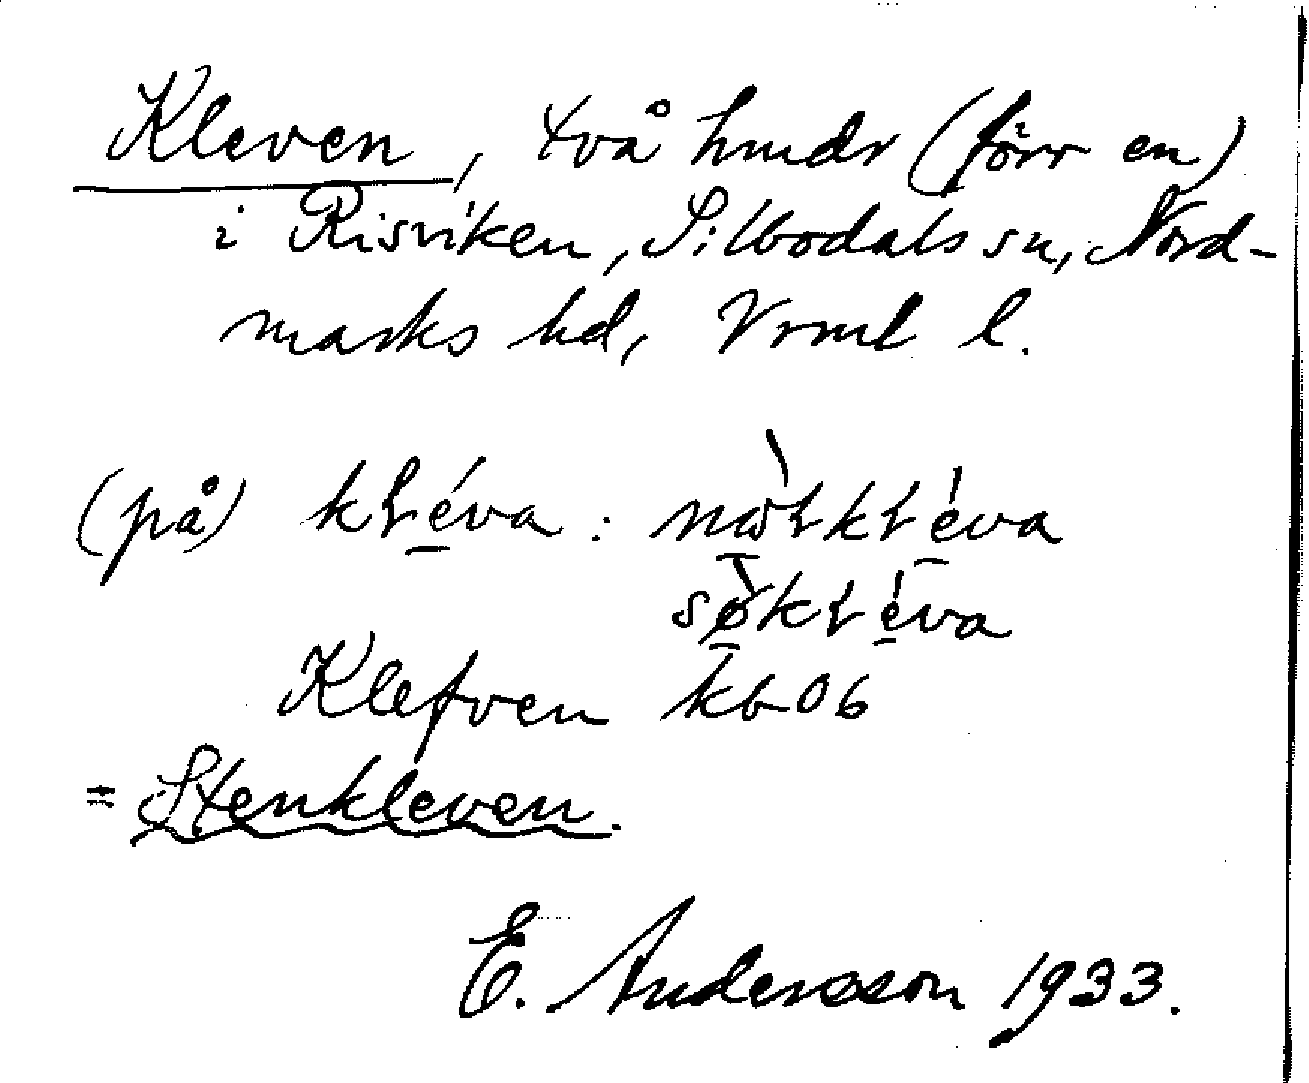 Kleven, två hmdr (förr en)
i Risviken, Silbodals sn, Nord-
marks hd, Vrml l.
(på) kɫé̱va : nὼ̱ɫkɫé̱va
sø̱̀kɫé̱va
Klefven kb 06
= Stenkleven.
E. Andersson 1933.